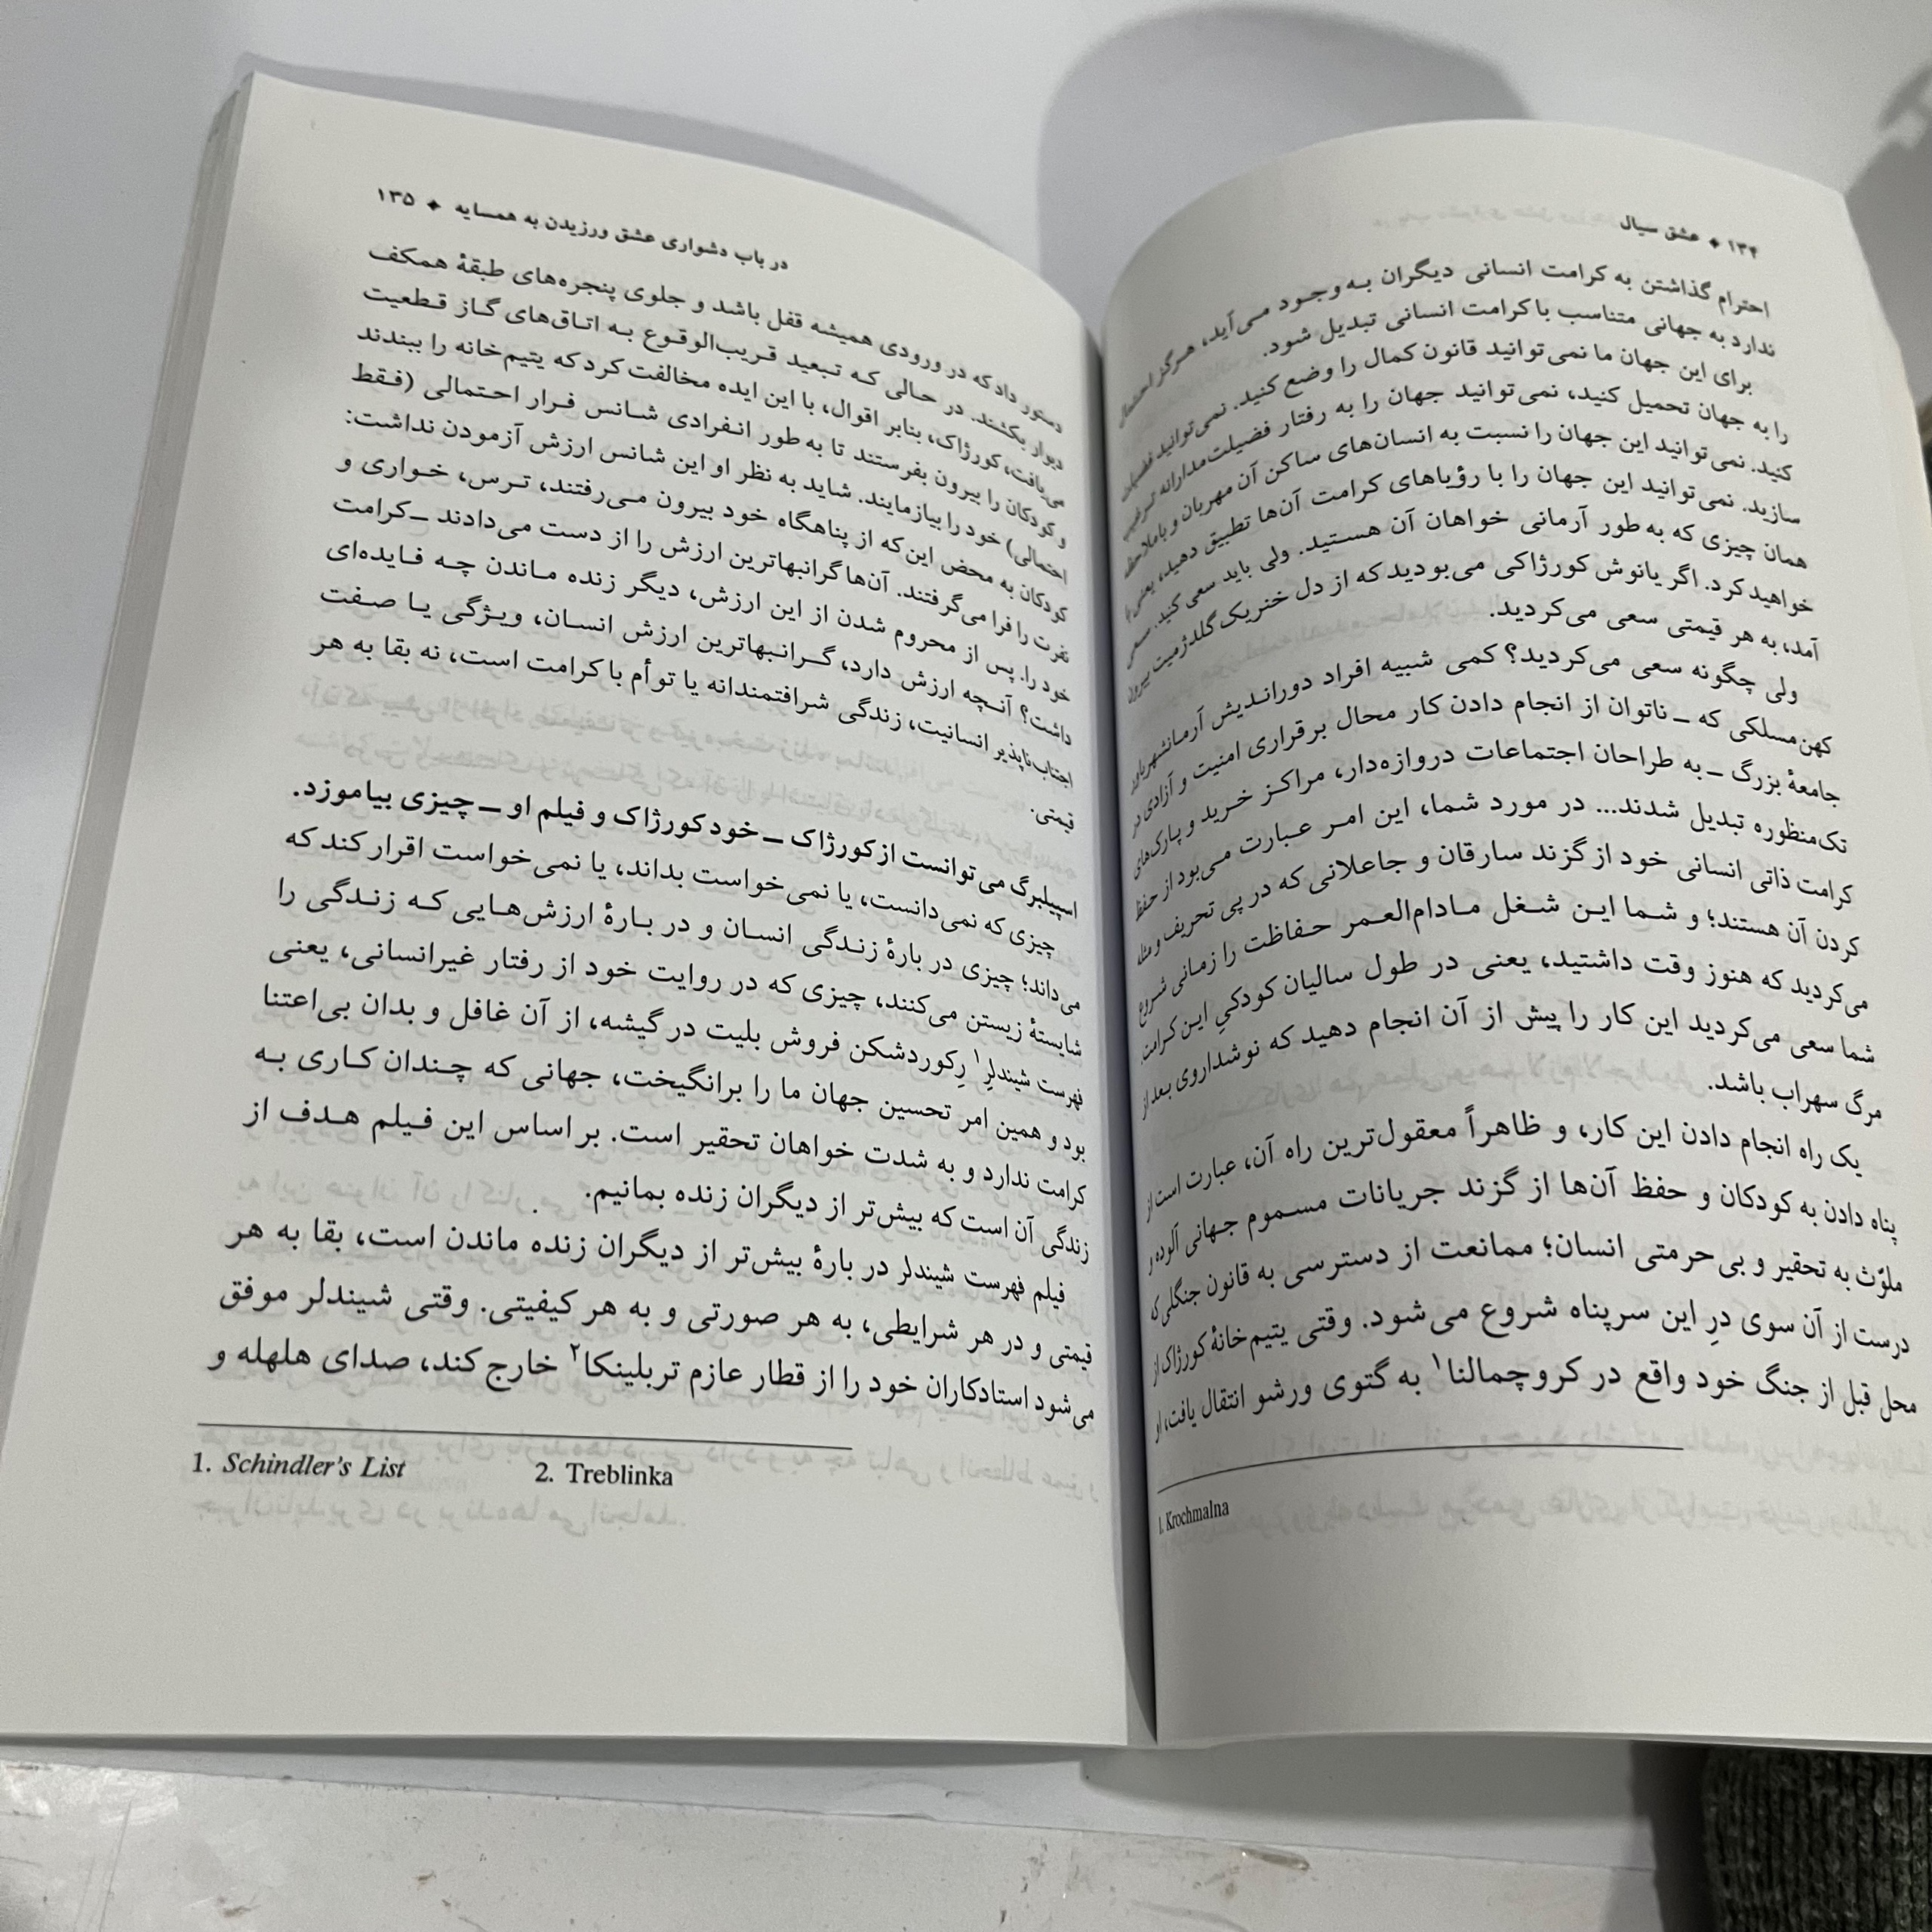 ۱۳۴ ◆ عشق سیال
احترام گذاشتن به کرامت انسانی دیگران به وجود می‌آید، هرگز احتمال
ندارد به جهانی متناسب با کرامت انسانی تبدیل شود.
برای این جهان ما نمی‌توانید قانون کمال را وضع کنید. نمی‌توانید فضیلت
را به جهان تحمیل کنید، نمی‌توانید جهان را به رفتار فضیلت‌مدارانه ترغیب
کنید. نمی‌توانید این جهان را نسبت به انسان‌های ساکن آن مهربان و باملاحظه
سازید. نمی‌توانید این جهان را با رؤیاهای کرامت آن‌ها تطبیق دهید، یعنی با
همان چیزی که به طور آرمانی خواهان آن هستید. ولی باید سعی کنید. سعی
خواهید کرد. اگر یانوش کورژاکی می‌بودید که از دل خنریک گلدژمیت بیرون
آمد، به هر قیمتی سعی می‌کردید.
ولی چگونه سعی می‌کردید؟ کمی شبیه افراد دوراندیش آرمانشهرباور
کهن‌مسلکی که ــ ناتوان از انجام دادن کار محال برقراری امنیت و آزادی در
جامعهٔ بزرگ ــ به طراحان اجتماعات دروازه‌دار، مراکز خرید و پارک‌های
تک‌منظوره تبدیل شدند... در مورد شما، این امر عبارت می‌بود از حفظ
کرامت ذاتی انسانی خود از گزند سارقان و جاعلانی که در پی تحریف و مثله
کردن آن هستند؛ و شما این شغل مادام‌العمر حفاظت را زمانی شروع
می‌کردید که هنوز وقت داشتید، یعنی در طول سالیان کودکیِ این کرامت.
شما سعی می‌کردید این کار را پیش از آن انجام دهید که نوشداروی بعد از
مرگ سهراب باشد.
یک راه انجام دادن این کار، و ظاهراً معقول‌ترین راه آن، عبارت است از
پناه دادن به کودکان و حفظ آن‌ها از گزند جریانات مسموم جهانی آلوده و
ملوّث به تحقیر و بی‌حرمتی انسان؛ ممانعت از دسترسی به قانون جنگلی که
درست از آن سوی درِ این سرپناه شروع می‌شود. وقتی یتیم‌خانهٔ کورژاک از
محل قبل از جنگ خود واقع در کروچمالنا۱ به گتوی ورشو انتقال یافت، او
1. Krochmalna
در باب دشواری عشق ورزیدن به همسایه ◆ ۱۳۵
دستور داد که در ورودی همیشه قفل باشد و جلوی پنجره‌های طبقهٔ همکف
دیوار بکشند. در حالی که تبعید قریب‌الوقوع به اتاق‌های گاز قطعیت
می‌یافت، کورژاک، بنابر اقوال، با این ایده مخالفت کرد که یتیم‌خانه را ببندند
و کودکان را بیرون بفرستند تا به طور انفرادی شانس فرار احتمالی (فقط
احتمالی) خود را بیازمایند. شاید به نظر او این شانس ارزش آزمودن نداشت:
کودکان به محض این‌که از پناهگاه خود بیرون می‌رفتند، ترس، خواری و
نفرت را فرا می‌گرفتند. آن‌ها گرانبهاترین ارزش را از دست می‌دادند ــ کرامت
خود را. پس از محروم شدن از این ارزش، دیگر زنده ماندن چه فایده‌ای
داشت؟ آنچه ارزش دارد، گرانبهاترین ارزش انسان، ویژگی یا صفت
اجتناب‌ناپذیر انسانیت، زندگی شرافتمندانه یا توأم با کرامت است، نه بقا به هر
قیمتی.
اسپیلبرگ می‌توانست از کورژاک ــ خود کورژاک و فیلم او ــ چیزی بیاموزد.
چیزی که نمی‌دانست، یا نمی‌خواست بداند، یا نمی‌خواست اقرار کند که
می‌داند؛ چیزی در بارهٔ زندگی انسان و در بارهٔ ارزش‌هایی که زندگی را
شایستهٔ زیستن می‌کنند، چیزی که در روایت خود از رفتار غیرانسانی، یعنی
فهرست شیندلرِ۱ رِکوردشکن فروش بلیت در گیشه، از آن غافل و بدان بی‌اعتنا
بود و همین امر تحسین جهان ما را برانگیخت، جهانی که چندان کاری به
کرامت ندارد و به شدت خواهان تحقیر است. بر اساس این فیلم هدف از
زندگی آن است که بیش‌تر از دیگران زنده بمانیم.
فیلم فهرست شیندلر در بارهٔ بیش‌تر از دیگران زنده ماندن است، بقا به هر
قیمتی و در هر شرایطی، به هر صورتی و به هر کیفیتی. وقتی شیندلر موفق
می‌شود استادکاران خود را از قطار عازم تربلینکا۲ خارج کند، صدای هلهله و
1. Schindler's List 2. Treblinka